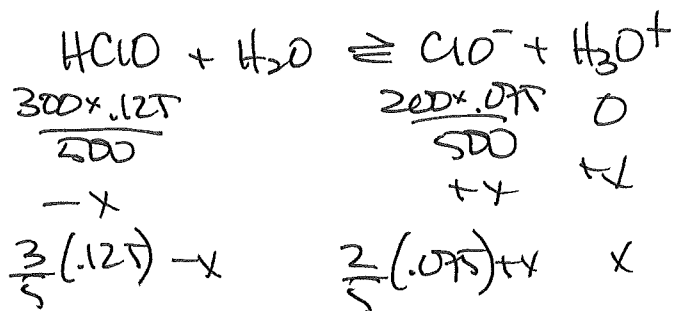 HClO + H₂O ⇌ ClO⁻ + H₃O⁺
300×.125 200×.075 0
500 500
-x +x +x
3/5 (.125) -x 2/5 (.075)+x x